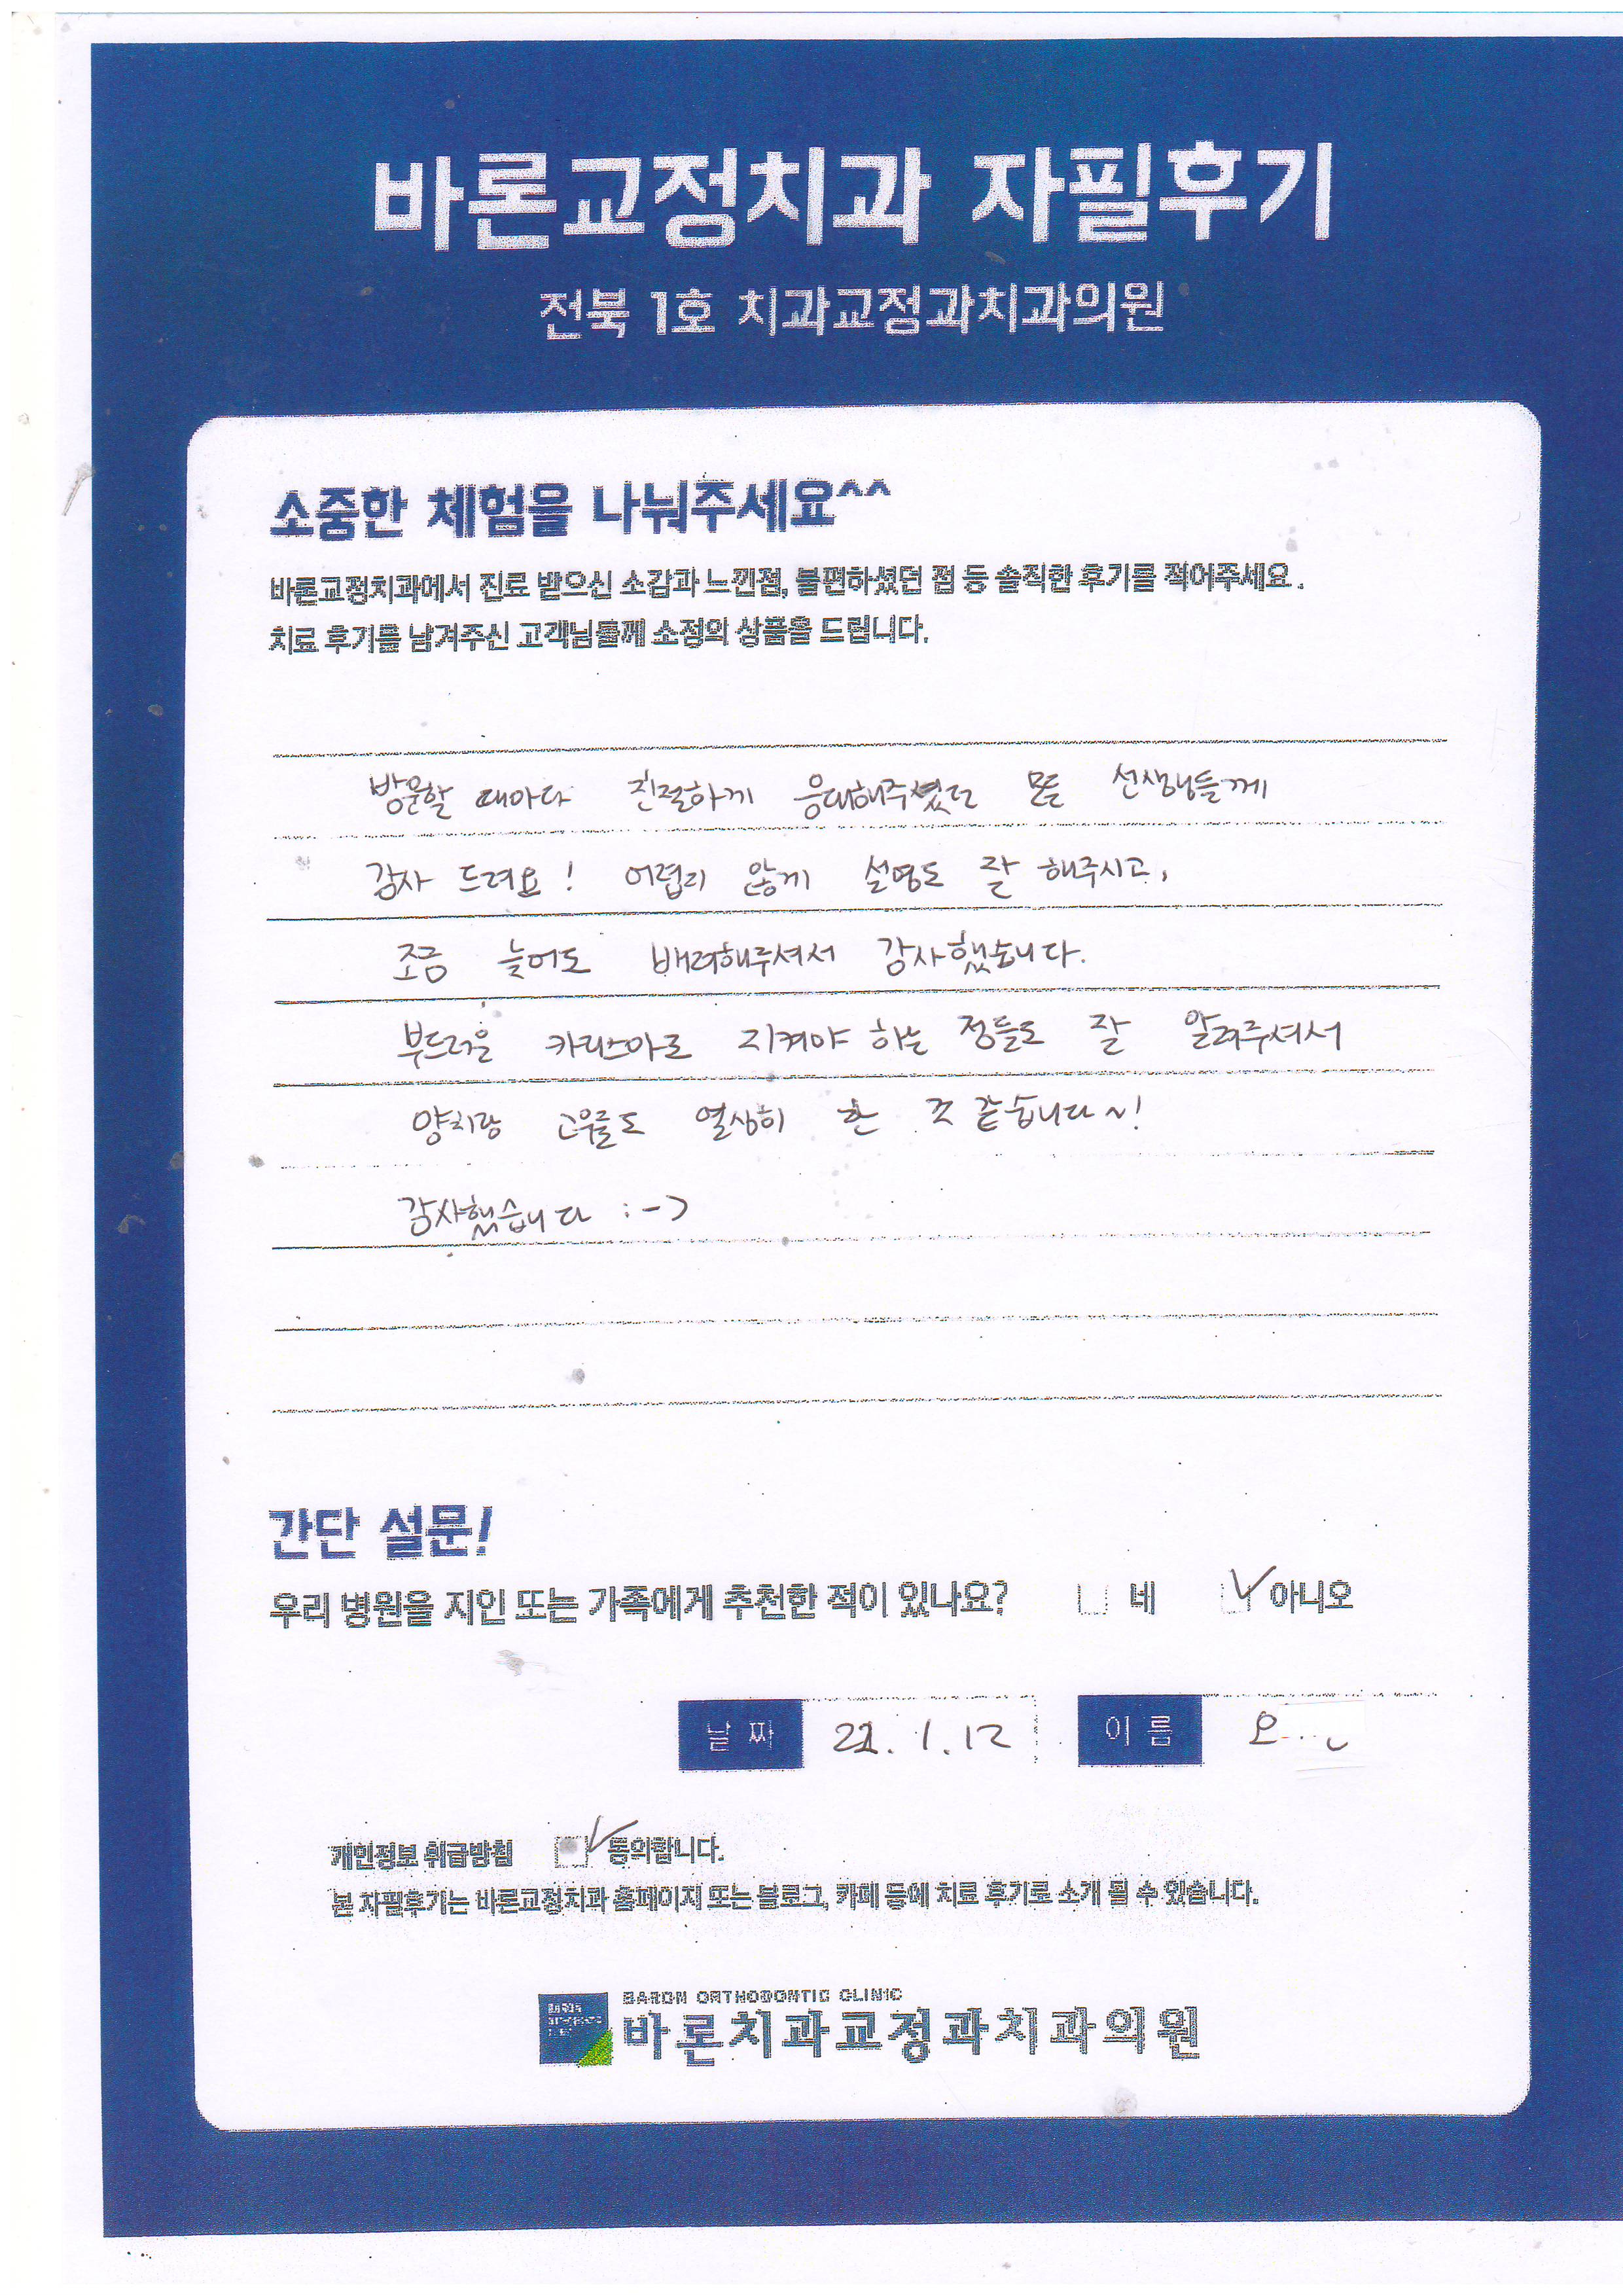 바론교정치과 자필후기
전북 1호 치과교정과치과의원
소중한 체험을 나눠주세요^^
바론교정치과에서 진료 받으신 소감과 느낀점, 불편하셨던 점 등 솔직한 후기를 적어주세요.
치료 후기를 남겨주신 고객님들께 소정의 상품을 드립니다.
방문할 때마다 친절하게 응대해주셨던 모든 선생님들께
감사 드려요! 어렵지 않게 설명도 잘 해주시고,
조금 늦어도 배려해주셔서 감사했습니다.
부드러운 카리스마로 지켜야 하는 점들도 잘 알려주셔서
양치랑 고무줄도 열심히 한 것 같습니다~!
감사했습니다 :->
간단 설문!
우리 병원을 지인 또는 가족에게 추천한 적이 있나요? 네 아니오
날짜 22.1.12 이름 오
개인정보 취급방침 동의합니다.
본 자필후기는 바론교정치과 홈페이지 또는 블로그, 카페 등에 치료 후기로 소개 될 수 있습니다.
BARON ORTHODONTIC CLINIC
바론치과교정과치과의원